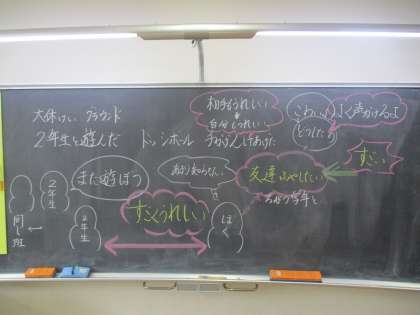 大休けい グラウンド
2年生と遊んだ ドッジボール
相手もうれしい
自分もうれしい
こわい
よく声かけるよ
どうしたら
2年生
また遊ぼう
あまり知らない
友達ふやしたい
すごい
ちがう学年と
同じ班
2年生
すごくうれしい
ぼく